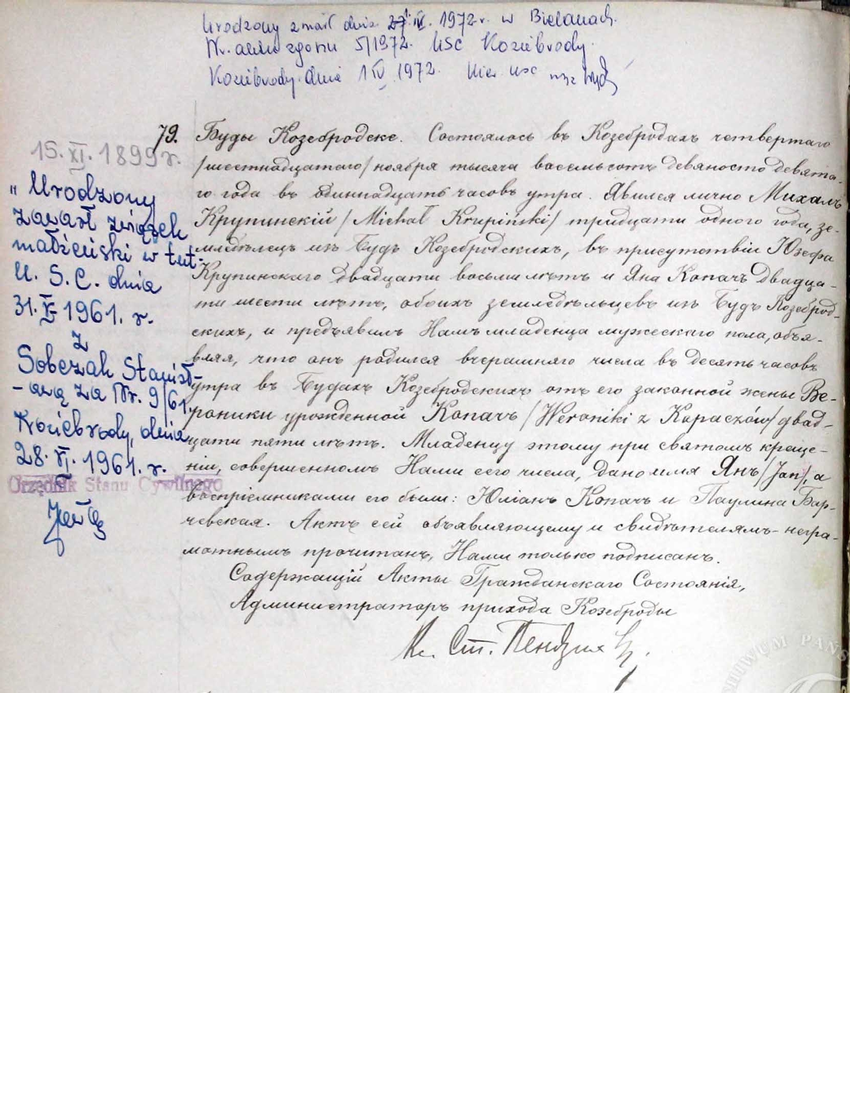 Urodzony zmarł dnia IV. 1972 r. w Bielanach.
Nr. aktu zgonu 5/1972. USC Koziebrody.
Koziebrody. dnia 1 IV 1972. Kier USC
79.
15. XI. 1899 r.
„Urodzony
zawarł związek
małżeński w tut.
U. S. C. dnia
31. 1961. r.
z
Sobczak Stanisł-
-awą za Nr. 9/61
Koziebrody, dnia
28. VI. 1961. r.
Urzędnik Stanu Cywilnego
Буды Козебродске. Состоялось въ Козебродахъ четвертаго
/шестнадцатаго/ ноября тысяча восемьсотъ девяносто девята-
го года въ одиннадцать часовъ утра. Явился лично Михалъ
Крупинскій /Michał Krupiński/ тридцати одного года, зе-
мледѣлецъ изъ Будъ Козебродскихъ, въ присутствіи Юзефа
Крупинскаго двадцати восьми лѣтъ и Яна Копачъ двадца-
ти шести лѣтъ, обоихъ земледѣльцевъ изъ Будъ Козеброд-
скихъ, и предъявилъ Намъ младенца мужескаго пола, объя-
вляя, что онъ родился вчерашняго числа въ десять часовъ
утра въ Будахъ Козебродскихъ отъ его законной жены Ве-
роники урожденной Копачъ /Weroniki z Kopaczów/ двад-
цати пяти лѣтъ. Младенцу этому при святомъ креще-
ніи, совершенномъ Нами сего числа, дано имя Янъ /Jan/, а
воспріемниками его были: Юліанъ Копачъ и Паулина Бар-
чевская. Актъ сей объявляющему и свидѣтелямъ негра-
мотнымъ прочитанъ, Нами только подписанъ.
Содержащій Акты Гражданскаго Состоянія,
Администраторъ прихода Козеброды
Кс. Ст.